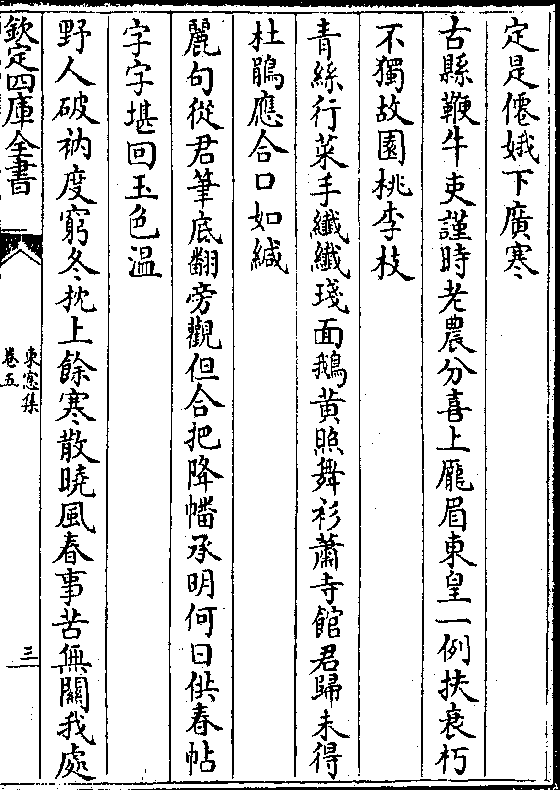 定是僊娥下廣寒
古縣鞭牛吏謹時老農分喜上龎眉東皇一例扶衰朽
不獨故園桃李枝
青絲行菜手纖纖琖面鵝黄照舞衫蕭寺館君歸未得
杜鵑應合口如緘
麗句從君筆底翻旁觀但合把降幡承明何日供春帖
字字堪回玉色温
野人破衲度窮冬枕上餘寒散曉風春事苦無關我處
欽定四庫全書
東窓集
卷五
三